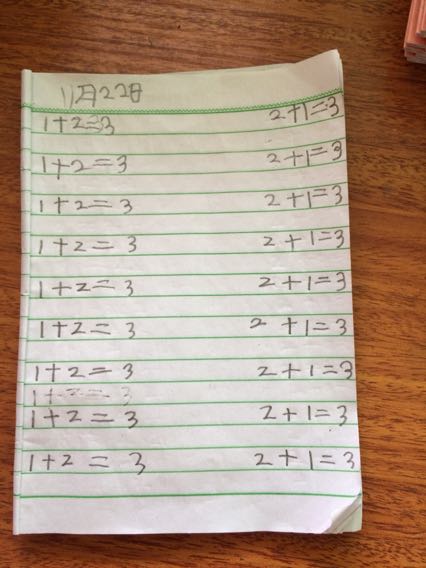 11月22日
1+2=3 2+1=3
1+2=3 2+1=3
1+2=3 2+1=3
1+2=3 2+1=3
1+2=3 2+1=3
1+2=3 2+1=3
1+2=3 2+1=3
1+2=3
1+2=3 2+1=3
1+2=3 2+1=3